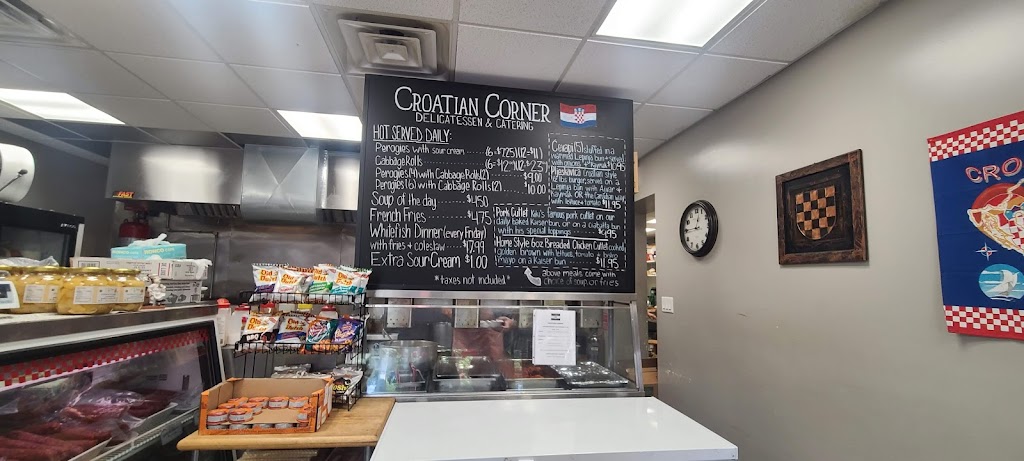 CROATIAN CORNER
DELICATESSEN & CATERING
HOT SERVED DAILY:
Perogies with sour cream
Cabbage Rolls
Perogies(4) with Cabbage Roll
$9.00
Perogies (6) with Cabbage Rolls (2)
$10.00
Soup of the day $4.50
French Fries $4.75
Whitefish Dinner (every Friday)
with fries + coleslaw $17.99
Extra Sour Cream $1.00
*taxes not included*
Cevapi (5) stuffed in a
warmed Lepinja bun + served
Pljeskavica Croatian style
lettuce + tomato $11.95
Pork Cutlet Kiki's famous pork cutlet on our
daily baked Kaiser bun, or on a ciabatta bun
with his special toppings
Home Style 6oz Breaded Chicken Cutlet cooked
golden brown with lettuce, tomato +
mayo on a Kaiser bun $11.95
above meals come with
choice of soup or fries
FAST
CRO